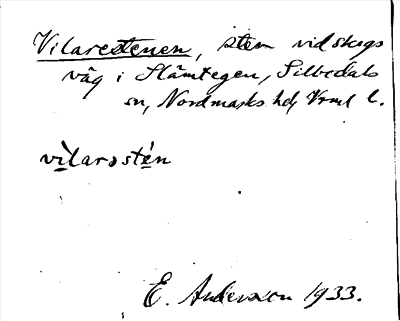 Vilarestenen, sten vid skogs
väg i Slämtegen, Silbodals
sn, Nordmarks hd, Vrml l.
vìlarəstén
E. Andersson 1933.